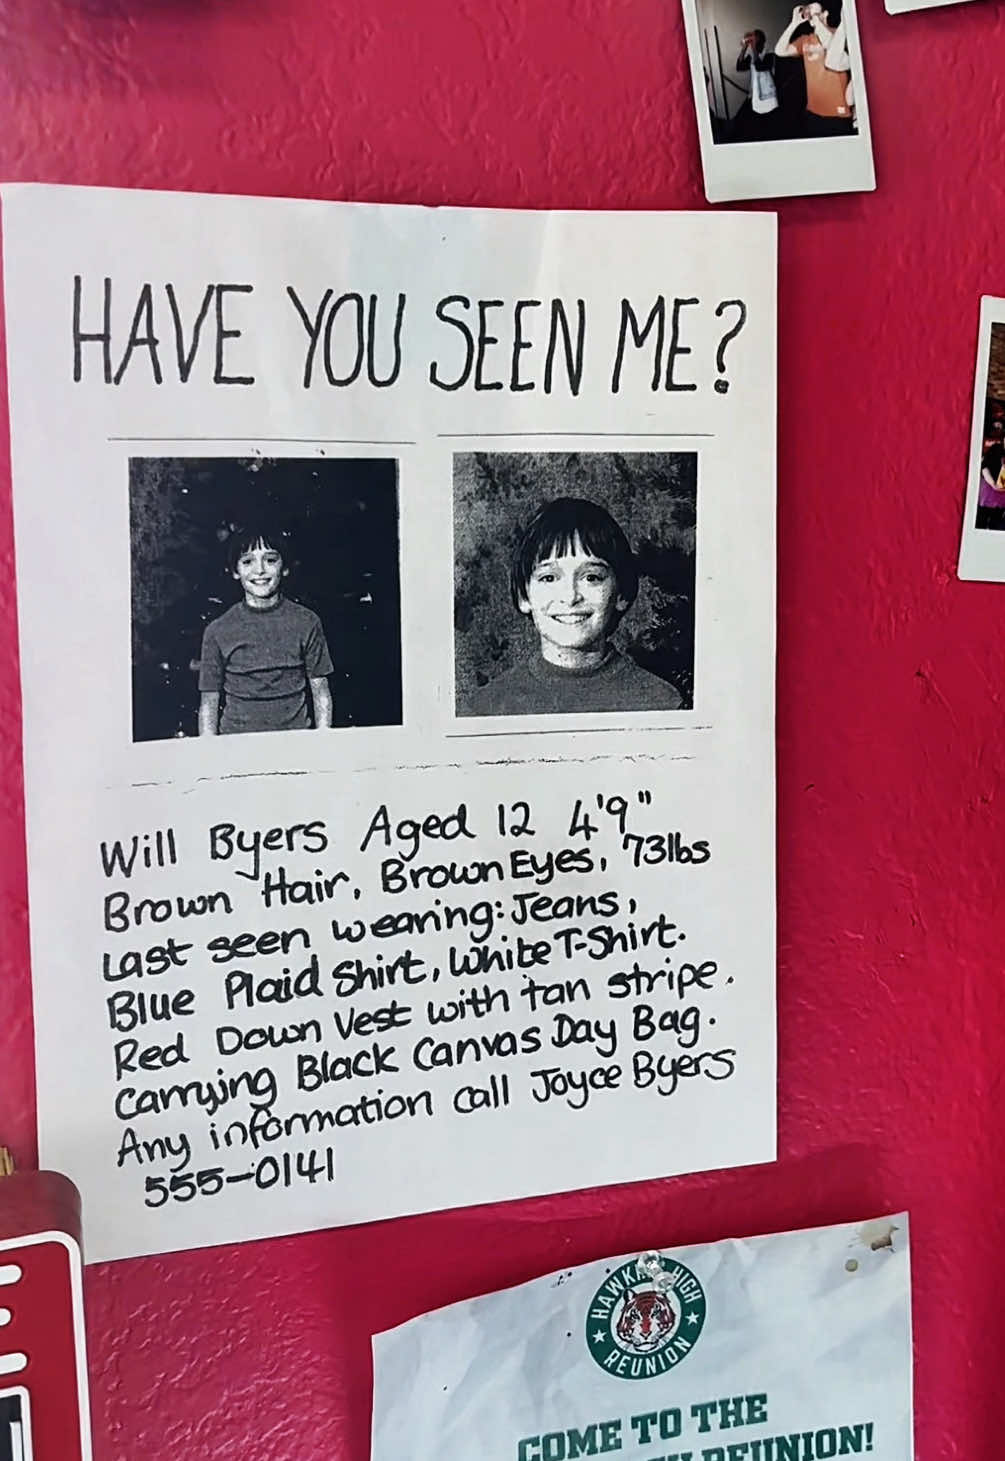 HAVE YOU SEEN ME?
Will Byers Aged 12 4'9"
Brown Hair, Brown Eyes, 73lbs
Last seen wearing: Jeans,
Blue Plaid Shirt, White T-Shirt.
Red Down Vest with tan stripe.
Carrying Black Canvas Day Bag.
Any information call Joyce Byers
555-0141
HAWKINS HIGH
REUNION
COME TO THE
REUNION!